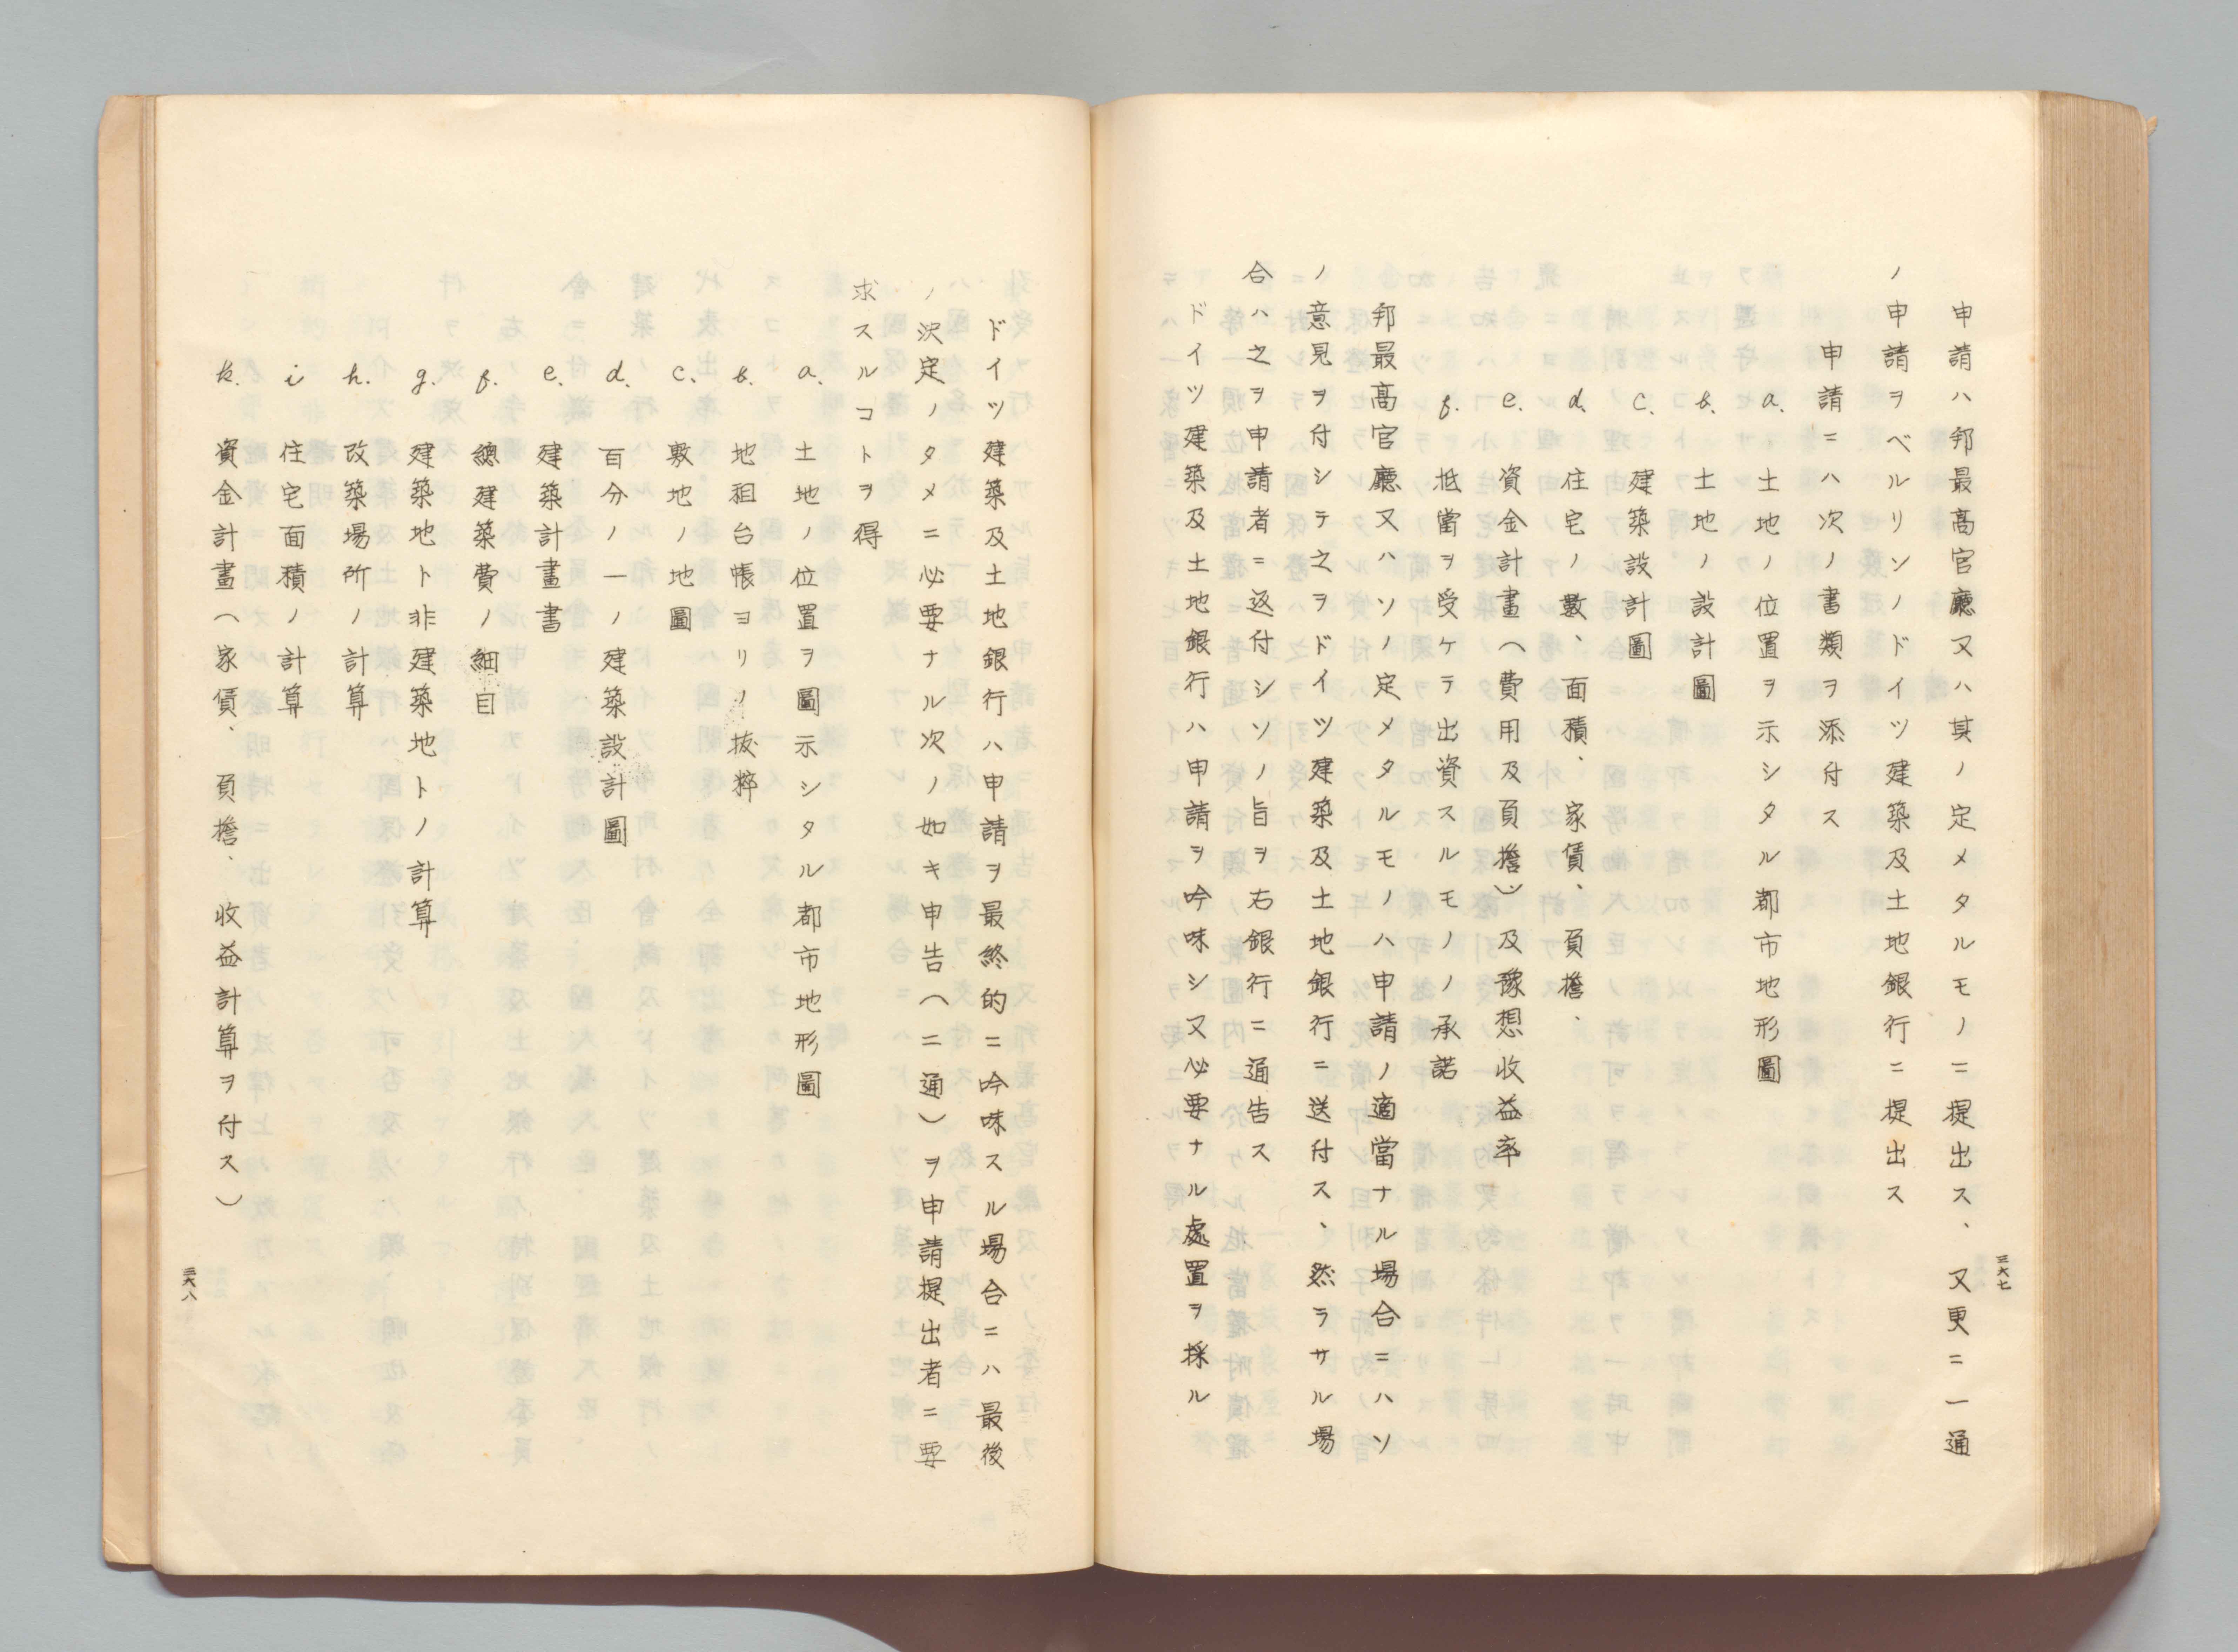 申請ハ邦最高官廳又ハ其ノ定メタルモノニ提出ス、又更ニ一通
ノ申請ヲベルリンノドイツ建築及土地銀行ニ提出ス
申請ニハ次ノ書類ヲ添付ス
a. 土地ノ位置ヲ示シタル都市地形圖
b. 土地ノ設計圖
c. 建築設計圖
d. 住宅ノ數、面積、家賃、負擔、
e. 資金計畫(費用及負擔)及豫想收益率
f. 抵當ヲ受ケテ出資スルモノノ承諾
邦最高官廳又ハソノ定メタルモノハ申請ノ適當ナル場合ニハソ
ノ意見ヲ付シテ之ヲドイツ建築及土地銀行ニ送付ス、然ラサル場
合ハ之ヲ申請者ニ返付シソノ旨ヲ右銀行ニ通告ス
ドイツ建築及土地銀行ハ申請ヲ吟味シ又必要ナル處置ヲ採ル
三六七
ドイツ建築及土地銀行ハ申請ヲ最終的ニ吟味スル場合ニハ最後
ノ決定ノタメニ必要ナル次ノ如キ申告(二通)ヲ申請提出者ニ要
求スルコトヲ得
a. 土地ノ位置ヲ圖示シタル都市地形圖
b. 地租台帳ヨリノ抜粹
c. 敷地ノ地圖
d. 百分ノ一ノ建築設計圖
e. 建築計畫書
f. 總建築費ノ細目
g. 建築地ト非建築地トノ計算
h. 改築場所ノ計算
i 住宅面積ノ計算
k. 資金計畫(家賃、負擔、收益計算ヲ付ス)
三六八